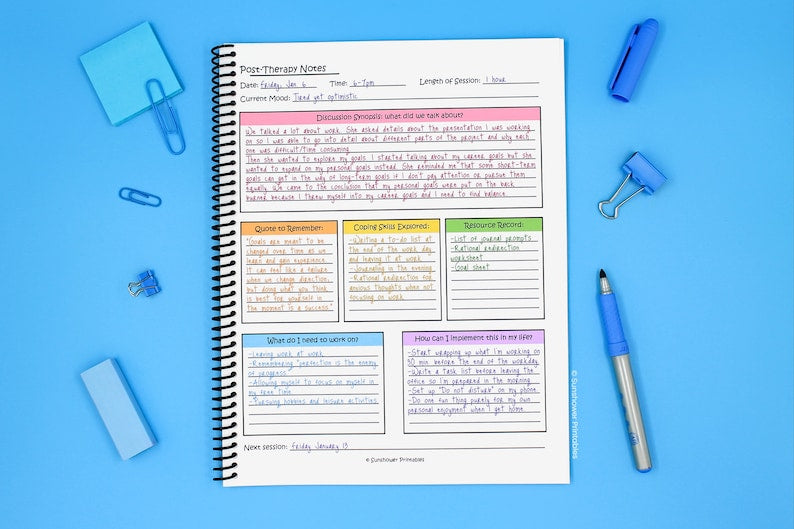 Post-Therapy Notes
Date: Friday, Jan 6 Time: 6-7pm Length of Session: 1 hour
Current Mood: Tired yet optimistic
Discussion Synopsis: what did we talk about?
We talked a lot about work. She asked details about the presentation I was working
on so I was able to go into detail about different parts of the project and why each
one was difficult/time consuming.
Then she wanted to explore my goals. I started talking about my career goals but she
wanted to expand on my personal goals instead. She reminded me that some short-term
goals can get in the way of long-term goals if I don't pay attention or pursue them
equally. We came to the conclusion that my personal goals were put on the back
burner because I threw myself into my career goals and I need to find balance.
Quote to Remember:
"Goals are meant to be
changed over time as we
learn and gain experience.
It can feel like a failure
when we change direction,
but doing what you think
is best for yourself in
the moment is a success."
Coping Skills Explored:
-Writing a to-do list at
the end of the work day
and leaving it at work
-Journaling in the evening
-Rational redirection for
anxious thoughts when not
focusing on work
Resource Record:
-List of journal prompts
-Rational redirection
worksheet
-Goal sheet
What do I need to work on?
-Leaving work at work
-Remembering "perfection is the enemy
of progress"
-Allowing myself to focus on myself in
my free time
-Pursuing hobbies and leisure activities
How can I implement this in my life?
-Start wrapping up what I'm working on
30 min before the end of the workday
-Write a task list before leaving the
office so I'm prepared in the morning
-Set up "Do not disturb" on my phone
-Do one fun thing purely for my own
personal enjoyment when I get home
Next session: Friday January 13
© Sunshower Printables
© Sunshower Printables